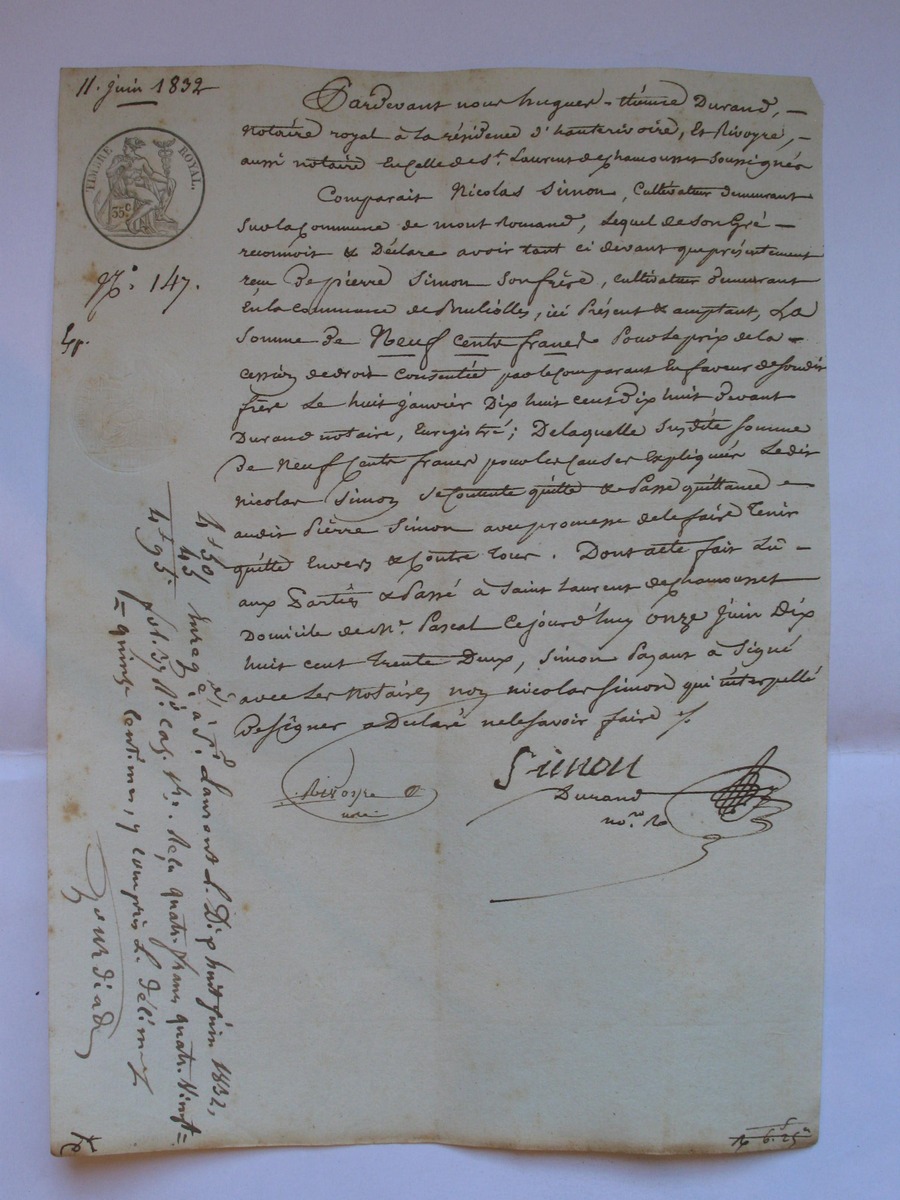 11. juin 1832
TIMBRE ROYAL.
35 c
N.° 147.
Exp.
Pardevant nous hugues-étienne Durand, -
notaire royal à la résidence d'hauterivoire, Et Rivoyre, -
aussi notaire En Celle de St. Laurent de chamousset soussignés
Comparait Nicolas Simon, Cultivateur demeurant
Sur la Commune de mont Romand, Lequel de Son Gré -
reconnoit & Déclare avoir tant ci devant que présentement
reçu De pierre Simon Son frère, cultivateur demeurant
En la Commune de Bruliolles, ici Présent & acceptant, La
Somme De Neuf Cents francs Pour Le prix de la -
cession de droit Consentie par le Comparant En faveur de Son dit
frère Le huit janvier Dix huit cent Dix huit Devant
Durand notaire, Enregistré; De laquelle Susdite Somme
De Neuf Cents francs pour les Causes Expliquées Le dit
nicolas Simon Se Contente quitte & Passe quittance =
audit Pierre Simon avec promesse de le faire Tenir
quitte Envers & Contre Tous. Dont acte fait Lû -
aux Parties & Passé à Saint Laurent de chamousset
Domicile de Mr. Pascal Ce jourd'huy onze juin Dix
huit cent Trente Deux, Simon Payant à Signé
avec Les Notaires non nicolas Simon qui interpellé
De Signer a Declaré ne le Savoir faire
Simon
Rivoyre
note
Durand
no.re
4 f 50
45
4 f 95
Enreg.é à St. Laurent L. Dix huit juin 1832,
fol. 37 R.° cas. Reçu quatre francs quatre Vingt =
= quinze Centimes, y compris L. Décime